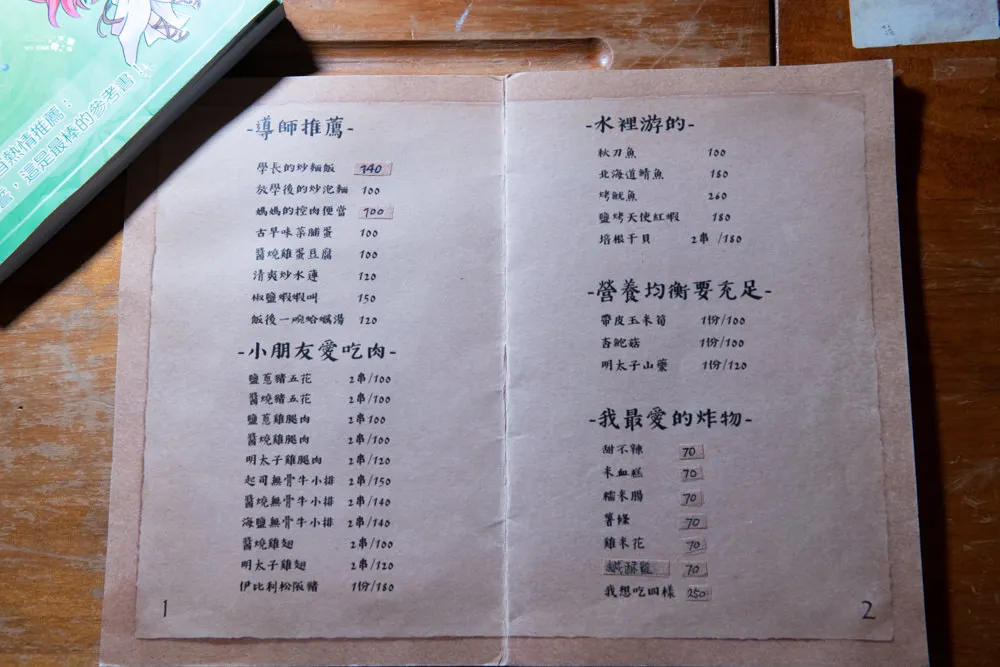 熱情推薦：
，這是最棒的參考書!!
-導師推薦-
學長的炒麵飯 140
放學後的炒泡麵 100
媽媽的控肉便當 100
古早味菜脯蛋 100
醬燒雞蛋豆腐 100
清爽炒水蓮 120
椒鹽蝦蝦叫 150
飯後一碗蛤蠣湯 120
-小朋友愛吃肉-
鹽蔥豬五花 2串/100
醬燒豬五花 2串/100
鹽蔥雞腿肉 2串100
醬燒雞腿肉 2串/100
明太子雞腿肉 2串/120
起司無骨牛小排 2串/150
醬燒無骨牛小排 2串/140
海鹽無骨牛小排 2串/140
醬燒雞翅 2串/100
明太子雞翅 2串/120
伊比利松阪豬 1份/180
1
-水裡游的-
秋刀魚 100
北海道鯖魚 180
烤魷魚 260
鹽烤天使紅蝦 180
培根干貝 2串 /180
-營養均衡要充足-
帶皮玉米筍 1份/100
杏鮑菇 1份/100
明太子山藥 1份/120
-我最愛的炸物-
甜不辣 70
米血糕 70
糯米腸 70
薯條 70
雞米花 70
鹹酥雞 70
我想吃四樣 250
2